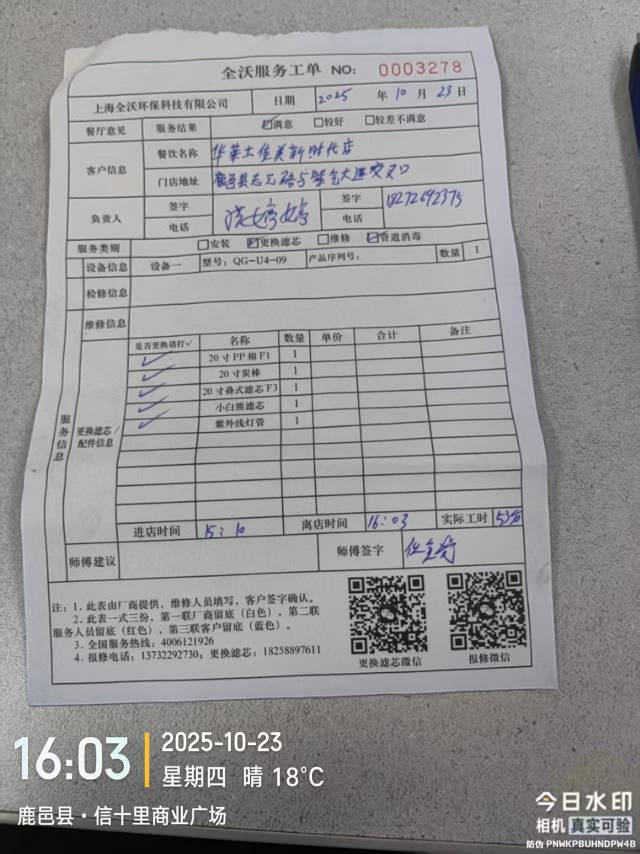 全沃服务工单 NO: 0003278
上海全沃环保科技有限公司 日期 2025 年 10 月 23 日
餐厅意见 服务结果 ☑满意 □较好 □较差不满意
客户信息 餐饮名称 华莱士 新时代店
门店地址 鹿邑县志元路与 大道交叉口
负责人 签字 电话 婷婷 签字 电话 18272692375
服务类别 □安装 ☑更换滤芯 □维修 ☑管道消毒
服务信息
设备信息 设备一 型号: QG-U4-09 产品序列号: 数量 1
检修信息
维修信息
更换滤芯/配件信息
是否更换请打✓ 名称 数量 单价 合计 备注
✓ 20寸PP棉F1 1
✓ 20寸炭棒 1
✓ 20寸叠式滤芯F3 1
✓ 小白熊滤芯 1
✓ 紫外线灯管 1
进店时间 15:10 离店时间 16:03 实际工时 53分
师傅建议 师傅签字
注: 1. 此表由厂商提供, 维修人员填写, 客户签字确认。
2. 此表一式三份, 第一联厂商留底(白色), 第二联
服务人员留底(红色), 第三联客户留底(蓝色)。
3. 全国服务热线: 4006121926
4. 报修电话: 13732292730; 更换滤芯: 18258897611
更换滤芯微信 报修微信
16:03 2025-10-23
星期四 晴 18°C
鹿邑县·信十里商业广场
今日水印
相机 真实可验
防伪 PNWKPBUHNDPW4B